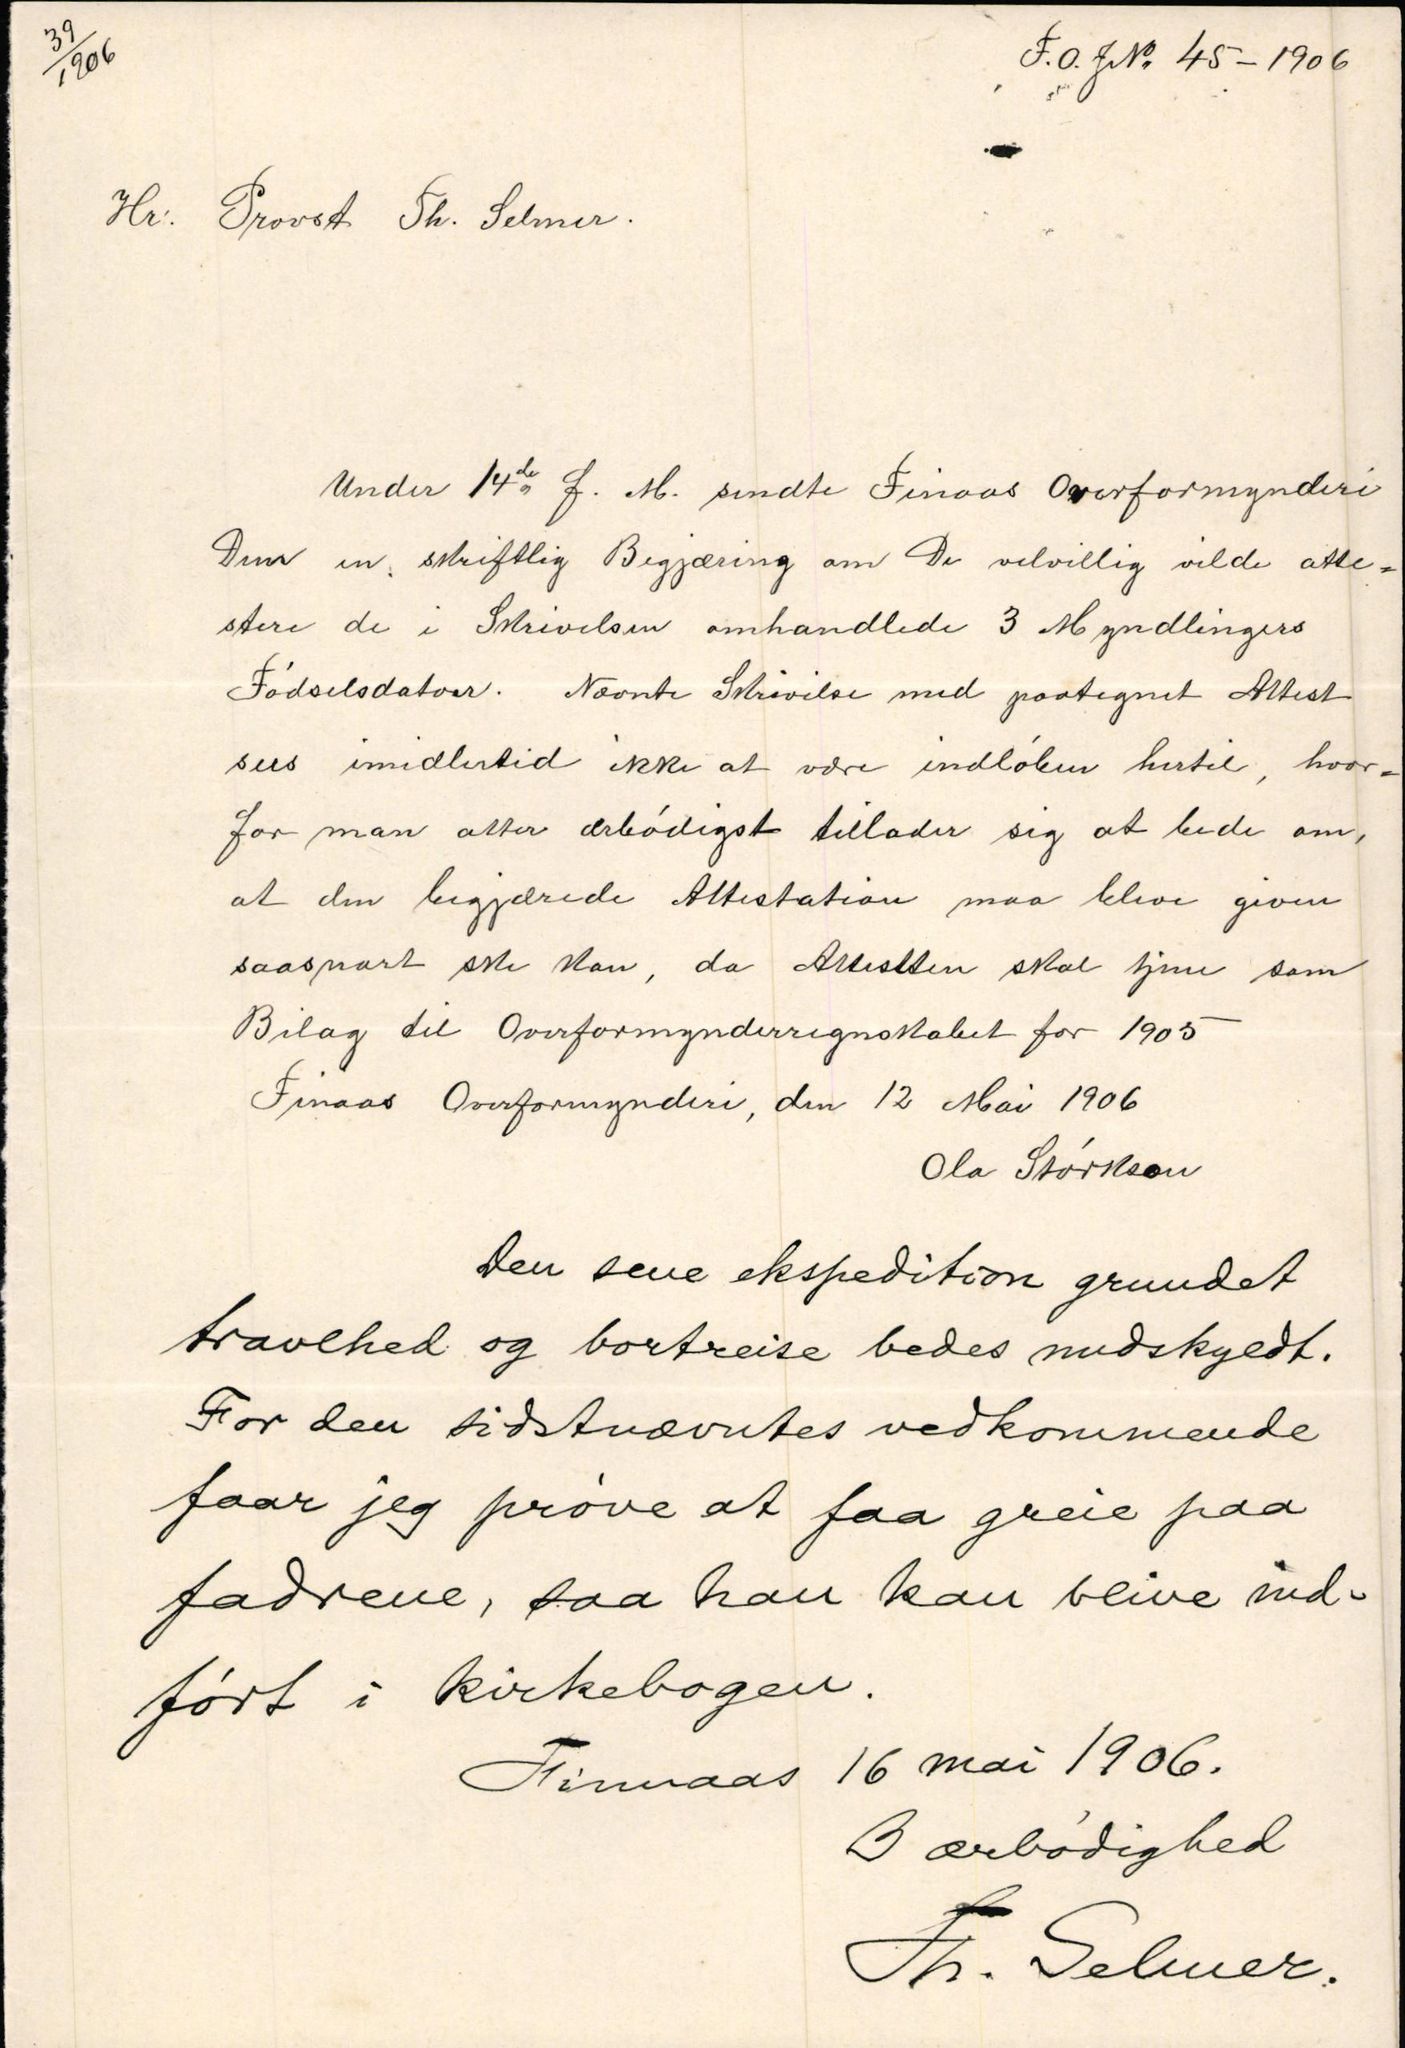 39/1906
F.O.J.No. 45–1906
Hr. Provst Th. Selmer.
Under 14de f. M. sendte Finaas Overformynderi
Dem en skriftlig Begjæring om De velvillig vilde atte-
stere de i Skrivelsen omhandlede 3 Myndlingers
Fødselsdatoer. Nævnte Skrivelse med paategnet Attest
sees imidlertid ikke at være indløben hertil, hvor-
for man atter ærbødigst tillader sig at bede om,
at den begjærede Attestation maa blive given
saasnart ske kan, da Attesten skal tjene som
Bilag til Overformynderregnskabet for 1905
Finaas Overformynderi, den 12 Mai 1906
Ola Størkson
Den sene ekspedition grundet
travlhed og bortreise bedes undskyldt.
For den sidstnævntes vedkommende
faar jeg prøve at faa greie paa
fadrene, saa han kan blive ind-
ført i kirkebogen.
Finnaas 16 mai 1906.
I ærbødighed
Th. Selmer.